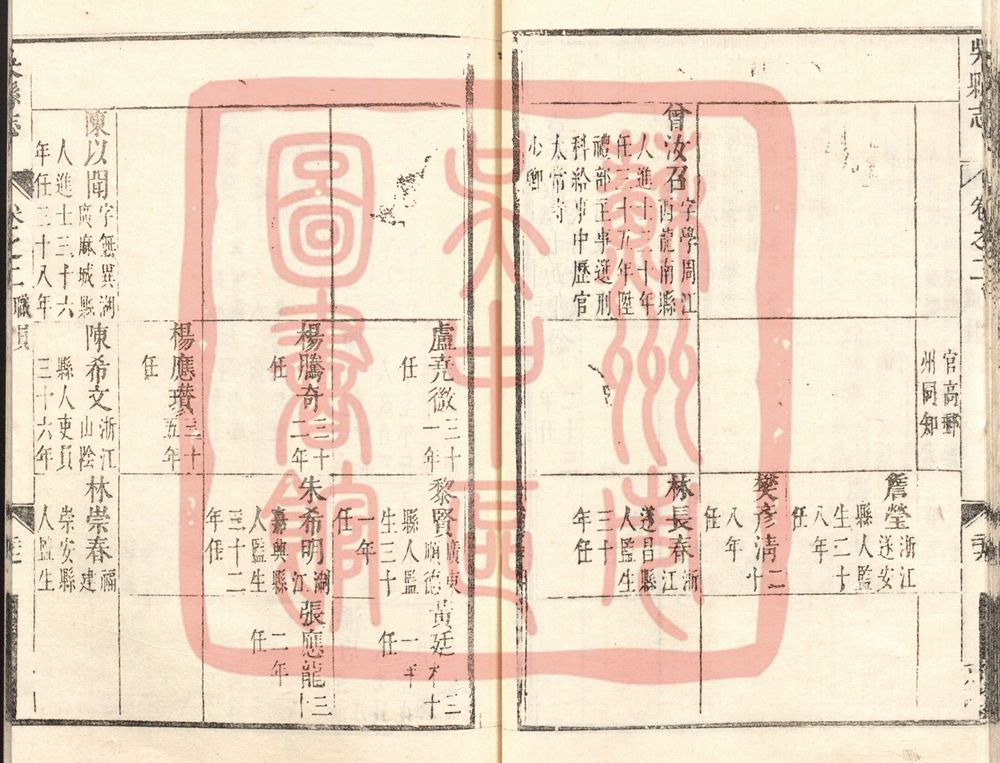 吳縣志
卷之二
官高郵
州同知
詹瑩
浙江
遂安
縣人監
生二十
八年
任
樊彥清
二十
八年
任
曾汝召
字學周江
西龍南縣
人進士三十年
任三十五年陞
禮部主事選刑
科給事中歷官
太常寺
少卿
林長春
浙江
遂昌縣
人監生
三十
年任
盧堯微
三十
一年
任
黎賢
廣東
順德
縣人監
生三十
一年
任
黃廷
三十
一年
任
楊騰奇
三十
二年
任
朱希明
浙江
嘉興縣
人監生
三十二
年任
張應龍
三十
二年
任
楊應瓚
三十
五年
任
陳以聞
字無異湖
廣麻城縣
人進士三十六
年任三十八年
陳希文
浙江
山陰
縣人吏員
三十六年
林崇春
福建
崇安縣
人監生
縣志
卷之二
職員
蘇州市
吳中區
圖書館